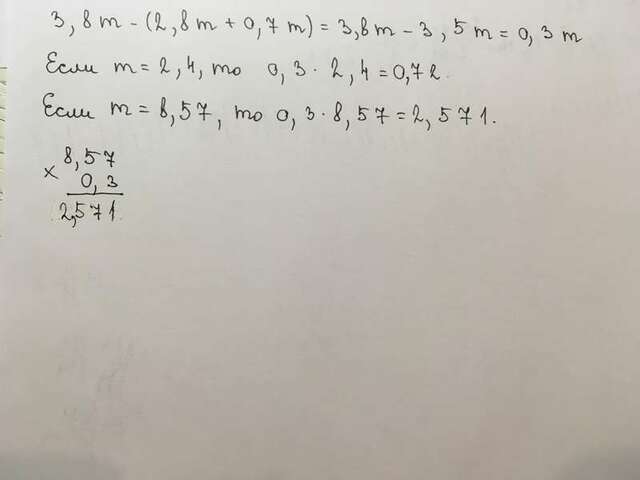 3,8m - (2,8m + 0,7m) = 3,8m - 3,5m = 0,3m
Если m = 2,4, то 0,3 · 2,4 = 0,72.
Если m = 8,57, то 0,3 · 8,57 = 2,571.
× 8,57
0,3
2,571.